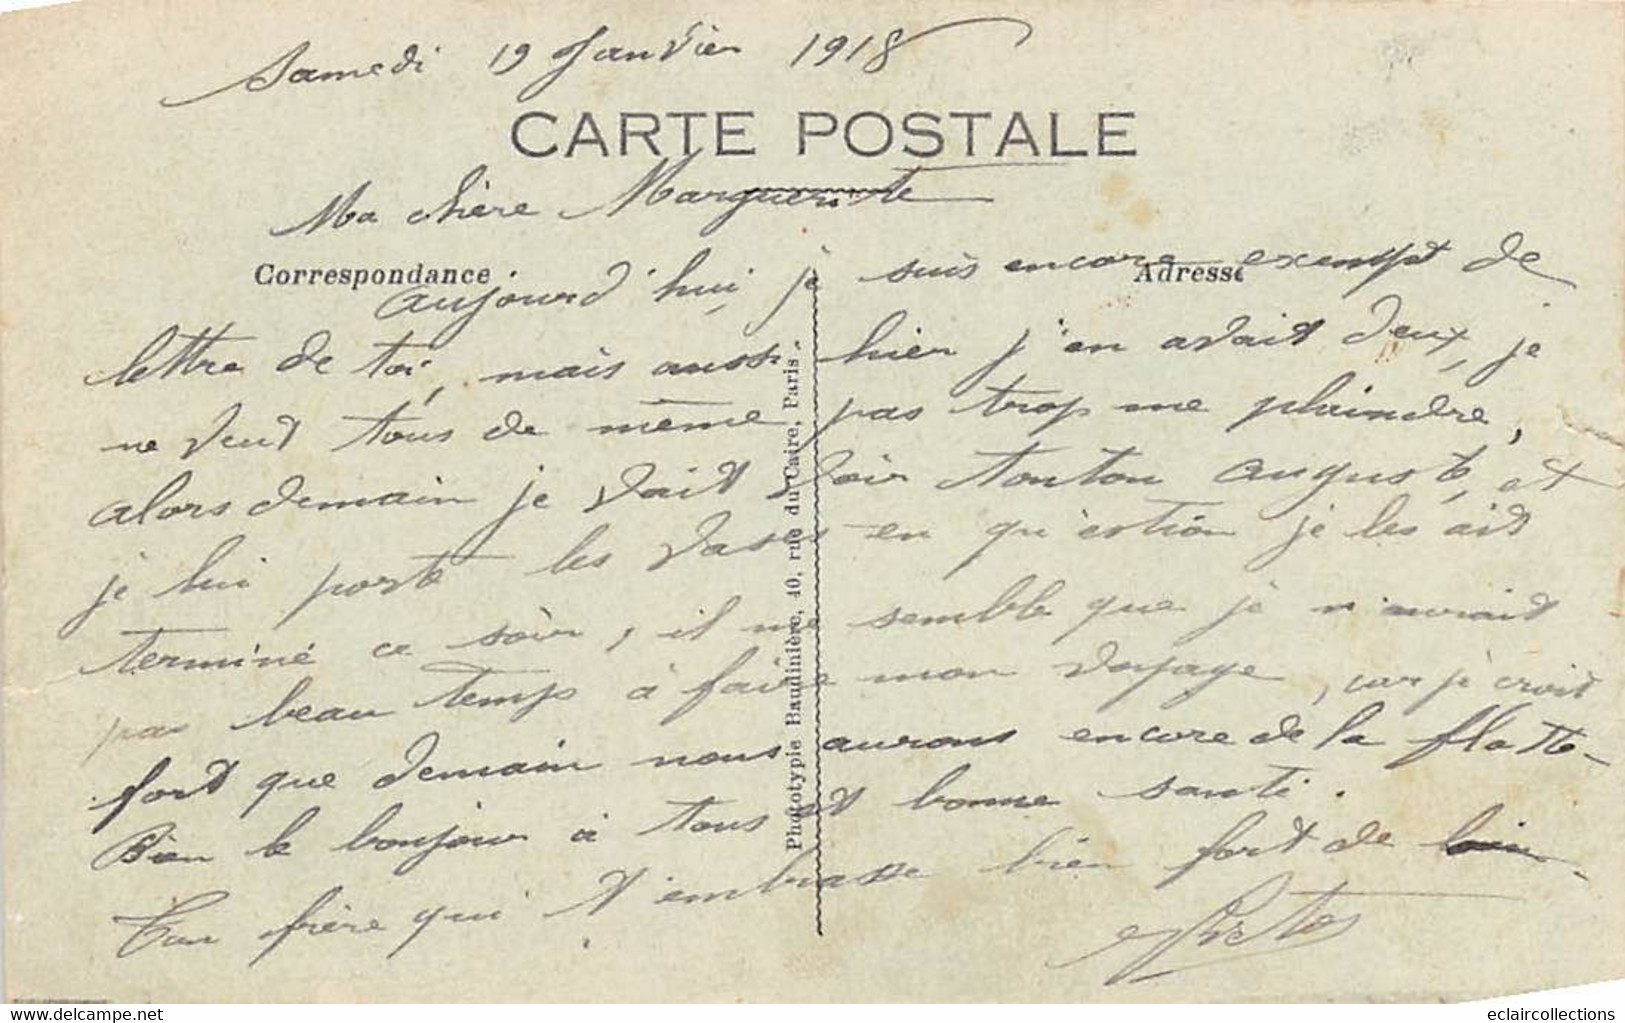 Samedi 19 Janvier 1918
CARTE POSTALE
Ma chière Marguerite
Correspondance
Adresse
aujourd'hui, je suis encore exempt de
lettre de toi, mais aussi hier j'en avait deux, je
ne veut tous de même pas trop me plaindre,
alors demain je vait voir tonton auguste, et
je lui porte les vases en qu'estion je les ait
terminé ce soir, il me semble que je n'aurait
pas beau temps à faire mon voyage, car je croit
fort que demain nous aurons encore de la flotte-
Bien le bonjour à tous et bonne santé.
Ton frère qui t'embrasse bien fort de loin-
Phototypie Baudinière, 40, rue du Caire, Paris.
www.delcampe.net
eclaircollections